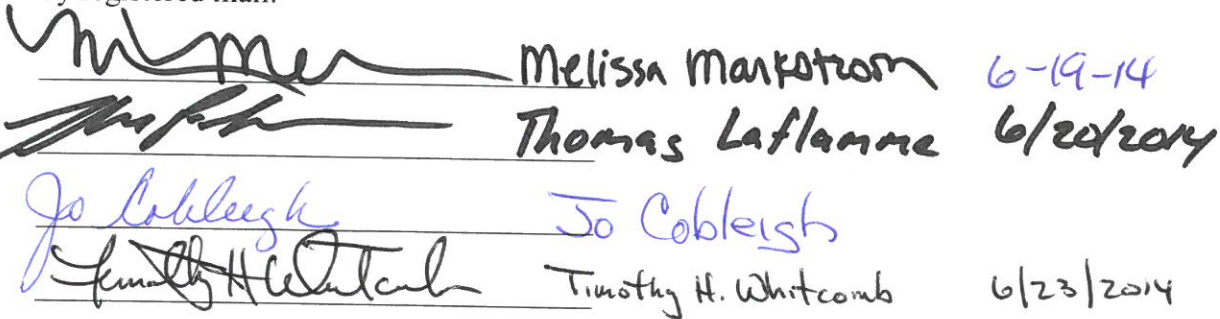 by registered mail.
Melissa Markstrom 6-19-14
Thomas Laflamme 6/20/2014
Jo Cobleigh Jo Cobleigh
Timothy H Whitcomb Timothy H. Whitcomb 6/23/2014